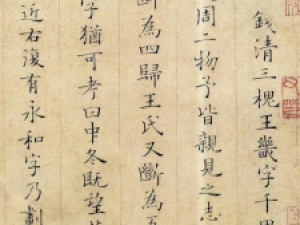 錢清三槐王畿字千里
周二物予皆親見之志
斷為四歸王氏又斷為五
字猶可考曰申冬既望
近右復有永和字乃劃